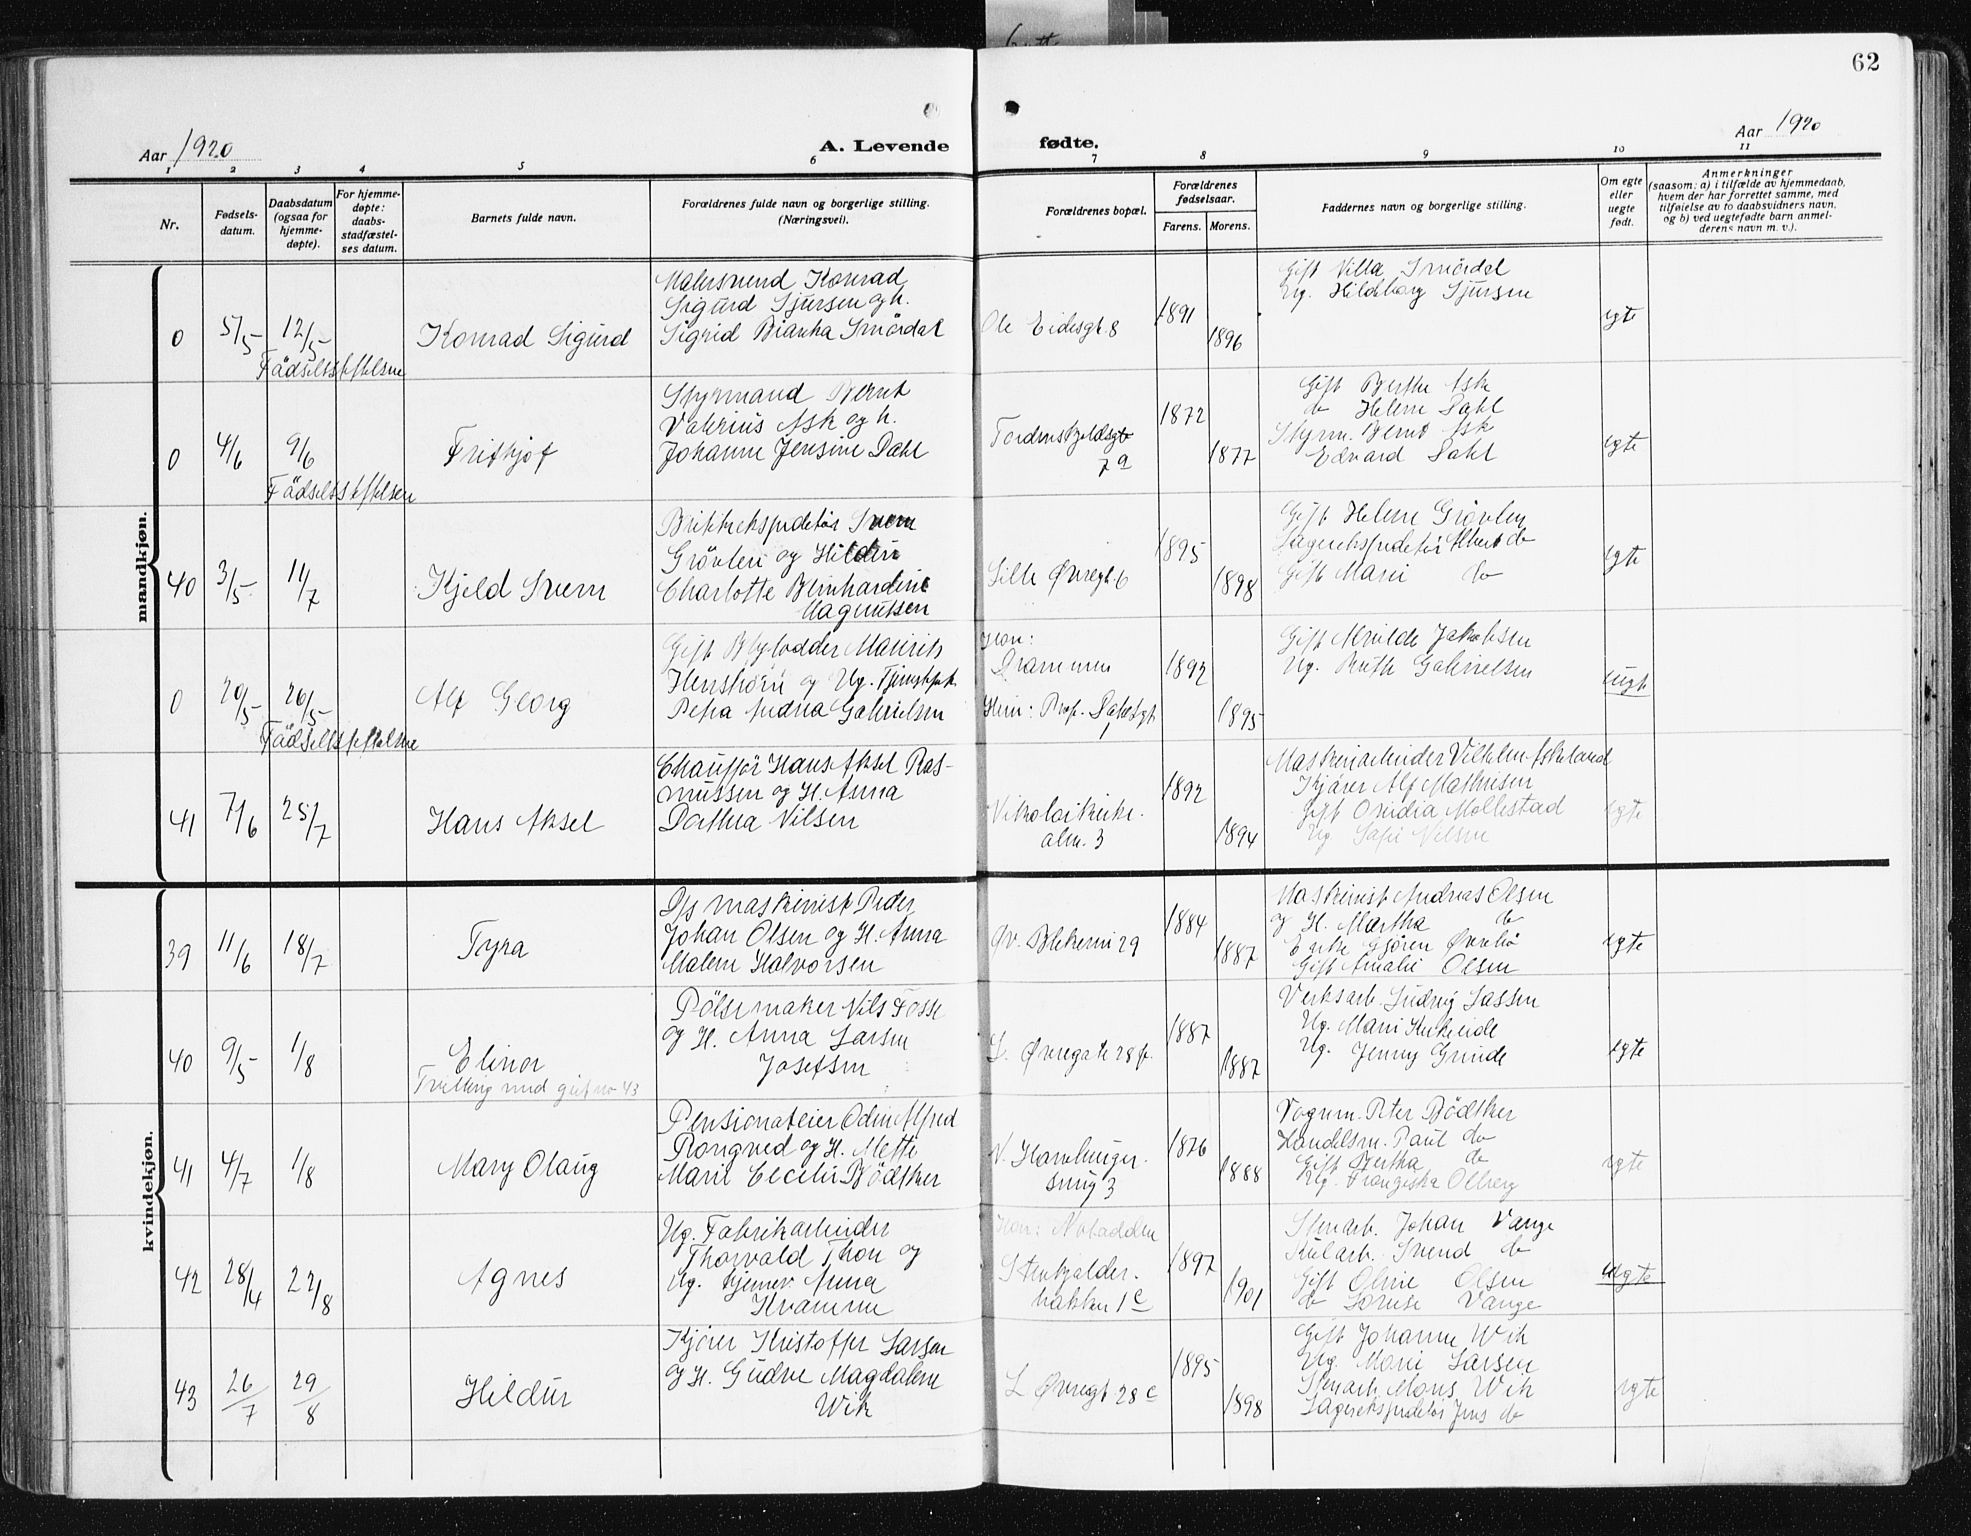 62
Aar 1920
A. Levende
fødte.
Aar 1920
1 2 3 4 5 6 7 8 9 10 11
Nr.
Fødsels-
datum.
Daabsdatum
(ogsaa for
hjemme-
døpte).
For hjemme-
døpte:
daabs-
stadfæstel-
ses datum.
Barnets fulde navn.
Forældrenes fulde navn og borgerlige stilling.
(Næringsvei).
Forældrenes bopæl.
Forældrenes
fødselsaar.
Farens. Morens.
Faddernes navn og borgerlige stilling.
Om egte
eller
uegte
født.
Anmerkninger
(saasom: a) i tilfælde av hjemmedaab,
hvem der har forrettet samme, med
tilføielse av to daabsvidners navn,
og b) ved uegtefødte barn anmel-
derens navn m. v.).
mandkjøn.
0 5/5 12/5
Födselsstiftelsen
Konrad Sigurd
Malersvend Konrad
Sigurd Sjursen og h.
Sigrid Bianka Smördal
Ole Eidesgt 8
1891
1896
Gift Villa Smördal
Ug. Hildeborg Sjursen
egte
0 4/6 9/6
Födselsstiftelsen
Frithjof
Styrmand Bernt
Valerius Ask og h.
Johanne Jensine Dahl
Tordenskjoldsgt
7a
1872
1877
Gift Berthe Ask
do Helene Dahl
Styrm. Bernt Ask
Edvard Dahl
egte
40 3/5 11/7
Kjeld Svern
Grövlen og
Charlotte Bernhardine
Magnussen
Lille Øvregt 6
1895
1898
Gift Helene Grövlen
Lagerekspeditör Albert do
Gift Marie do
egte
0 20/5 26/5
Födselsstiftelsen
Alf Georg
Gift Blylodder Maurits
og Ug. Tjenestepik
Petra Andrea Gabrielsen
Han:
Drammen
Hun: Prof. Dahlsgt
1
1892
1895
Gift Jakobsen
Ug. Ruth Gabrielsen
uegte
41 7/6 25/7
Hans Aksel
Chauffør Hans Aksel Ras-
mussen og H. Anna
Dorthea Nilsen
Nikolaikirke-
alm. 3
1892
1894
Maskinarbeider Vilhelm Askeland
Kjører Alf Mathisen
Gift Ovidia Mollestad
Ug Sofie Nilsen
egte
kvindekjøn.
39 11/6 18/7
Tyra
D/s maskinist Peder
Johan Olsen og H. Anna
Malene Halvorsen
Øv. Blekevei 29
1884
1887
Maskinist Andreas Olsen
og H. Martha do
Enke Gjören Øvrebö
Gift Amalie Olsen
egte
40 9/5 1/8
Elinor
Tvilling med gut no 43
Pölsemaker Nils Fosse
og H. Anna Larsen
Josefsen
L. Øvregate 28 f.
1887
1887
Verksarb. Ludvig Lassen
Ug. Marie Kirkeeide
Ug. Jenny Grinde
egte
41 4/7 1/8
Mary Olaug
Pensionateier Odin Alfred
Rongved og H. Mette
Marie Cecilie Bödtker
N. Hamburger-
smug 3
1876
1888
Vognm. Peter Bödtker
Handelsm. Paul do
Gift Bertha do
Ug. Frangiska Olberg
egte
42 28/4 22/8
Agnes
Ug. Fabrikarbeider
Thorvald Thon og
Ug. hjemv. Anna
Kvamme
Han: Notodden
Stenkjelder-
bakken 1c
1897
1901
Stenarb. Johan Vange
Kularb. Svend do
Gift Oline Olsen
do Lovise Vange
uegte
43 26/7 29/8
Hildur
Kjører Kristoffer Larsen
og H. Gudve Magdalene
Wik
L Øvregt 28 c
1895
1898
Gift Johanne Wik
Ug. Marie Larsen
Stenarb. Mons Wik
Lagerekspeditör Jens do
egte